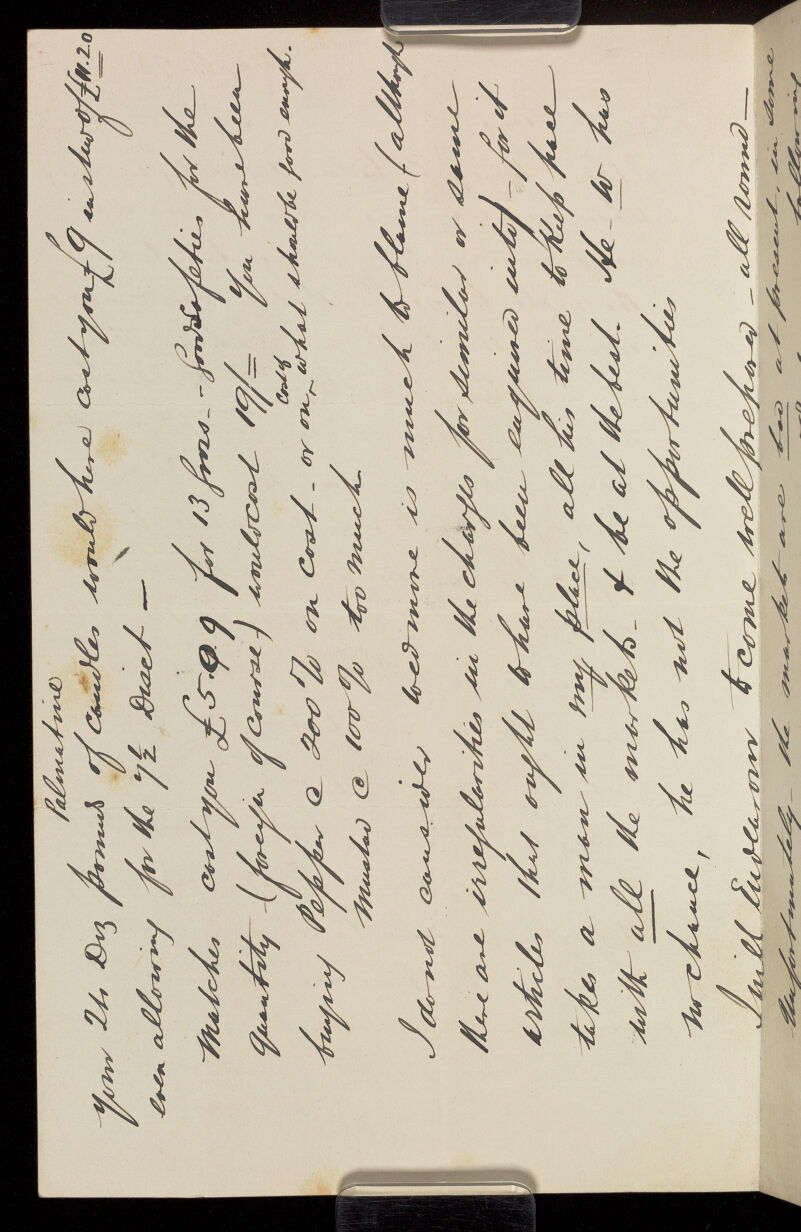 Palmatine
your 24 Doz pounds of Candles would here cost you £9 instead of £11.20
even allowing for the 7½ Disct —
Matches cost you £5.9.9 for 13 Gross - Good Safeties for the
quantity (foreign of course) would cost 19/= You have been
buying Pepper @ 200% on cost - or on, cost of what should be good enough.
Mustard @ 100% too much.
I do not consider Wedmore is much to blame (although
there are irregularities in the charges for similar or same
articles that ought to have been enquired into) - for it
takes a man in my place, all his time to keep pace
with all the markets - & be at the best. He - W has
no chance, he has not the opportunities
I will Endeavour to come well prepared - all round —
Unfortunately - the markets are bad at present, in some
following